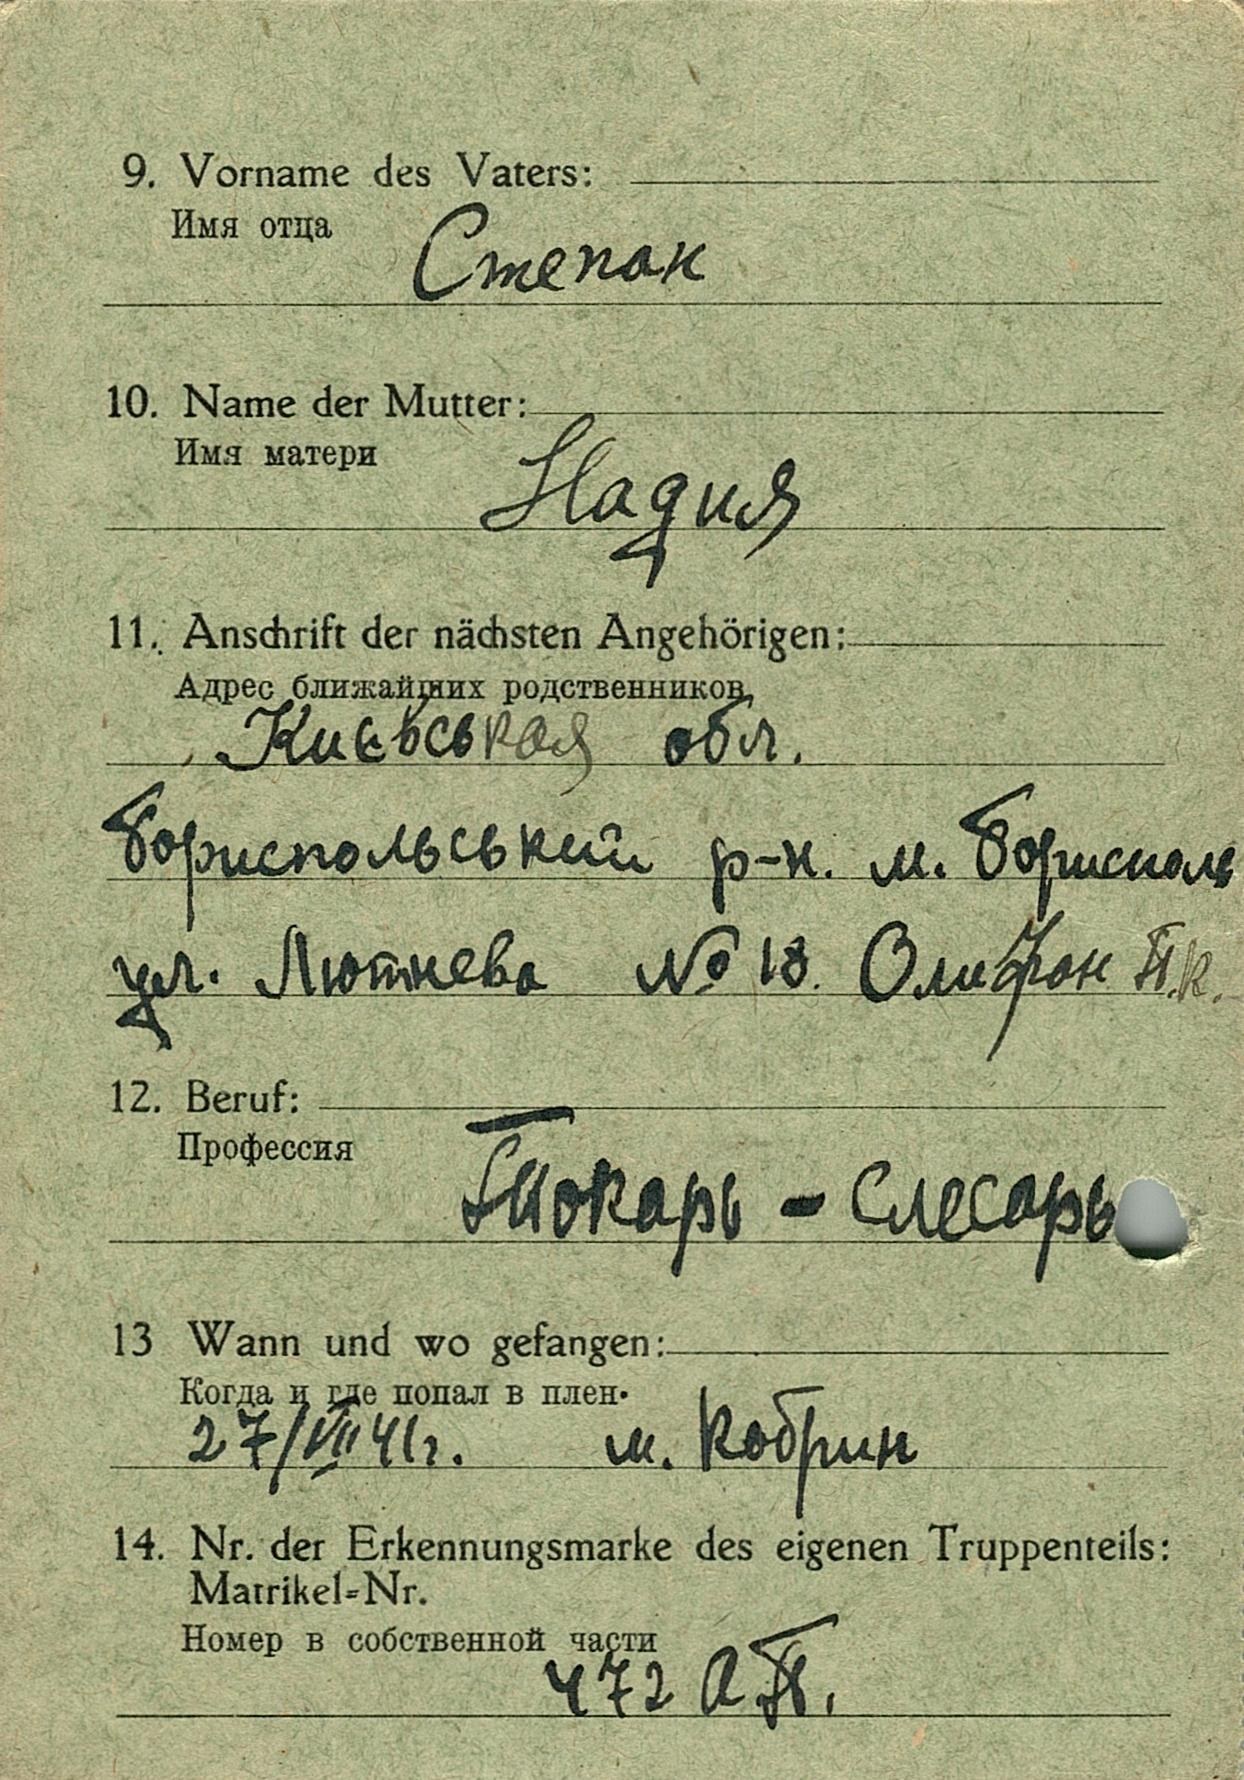 9. Vorname des Vaters:
Имя отца
Степан
10. Name der Mutter:
Имя матери
Надия
11. Anschrift der nächsten Angehörigen:
Адрес ближайших родственников
Киевськая обл.
Бориспольський р-н. м. Борисполь
ул. Лютнева № 18. Олифан
12. Beruf:
Профессия
Токарь - Слесарь
13 Wann und wo gefangen:
Когда и где попал в плен.
27/VII 41г. м. Кобрин
14. Nr. der Erkennungsmarke des eigenen Truppenteils:
Matrikel=Nr.
Номер в собственной части
472 АП.